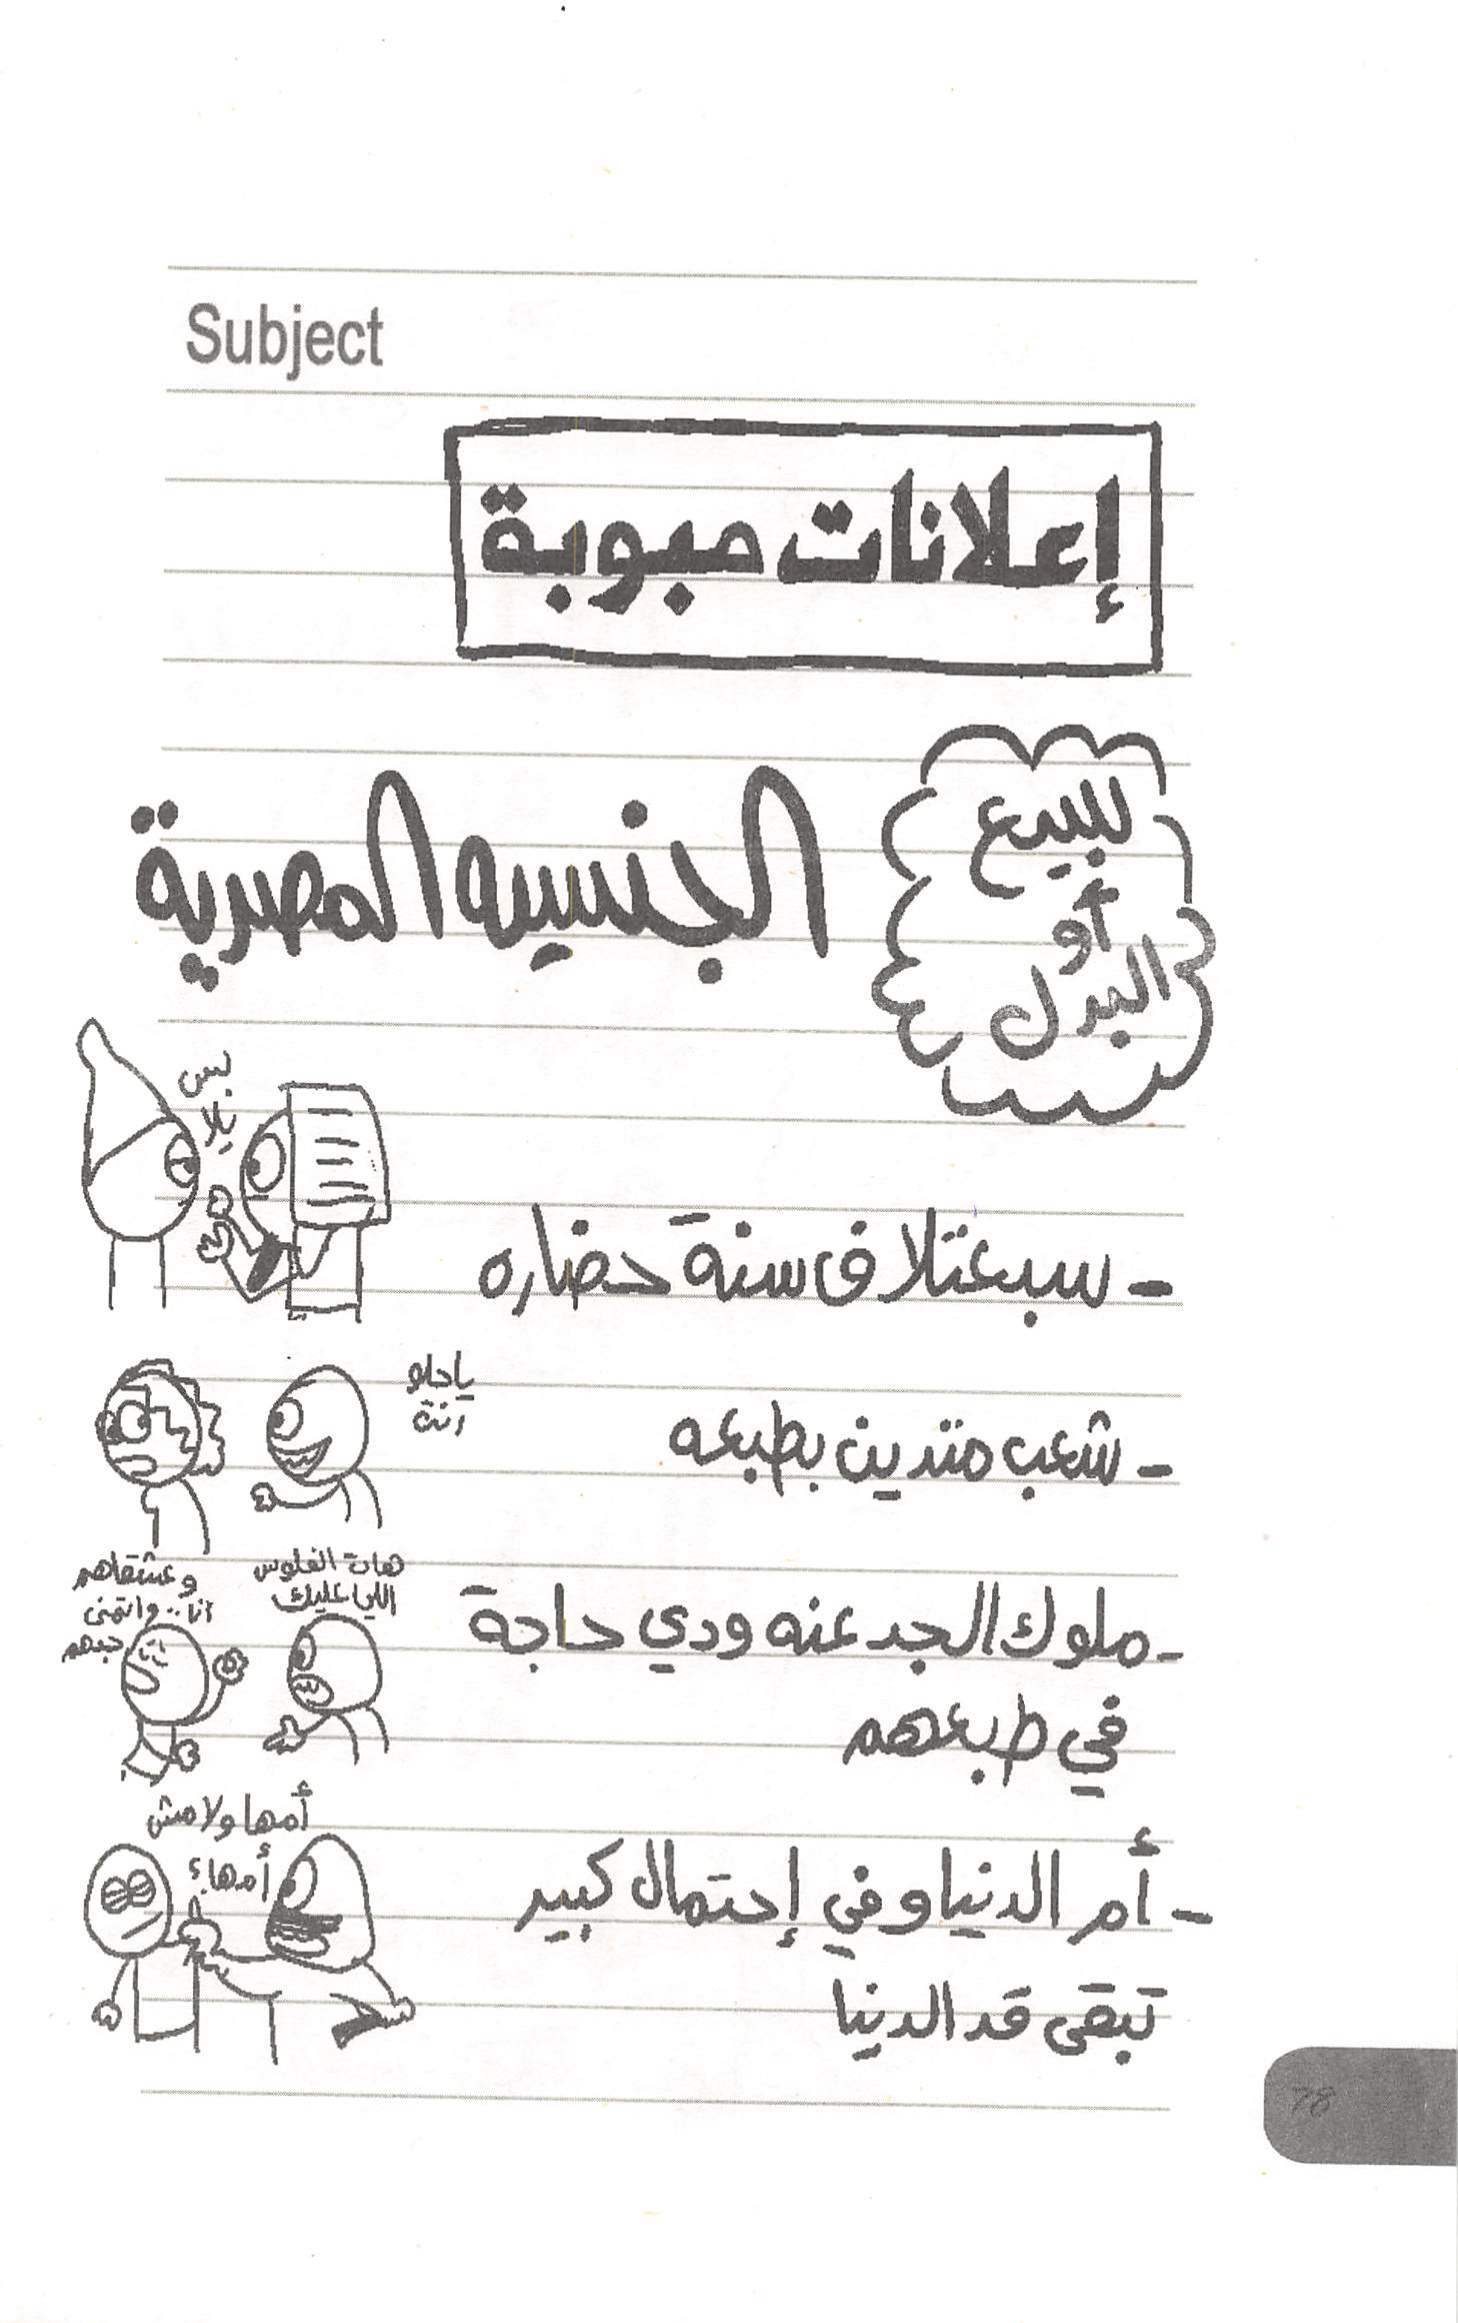 Subject
إعلانات مبوبة
للبيع
أو
البدل
الجنسيه المصرية
بس
يلا
- سبعتلاف سنة حضاره
يا حلو
إنت
- شعب متدين بطبعه
هات الفلوس
اللي عليك
وعشقاهم
أنا.. واتمنى
جبهم
- ملوك الجدعنه ودي حاجة
في طبعهم
أمها ولا مش
أمها؟
- أم الدنيا وفي إحتمال كبير
تبقى قد الدنيا
78